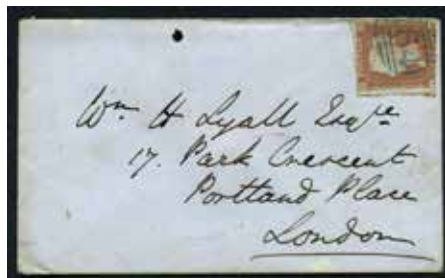 Wm H Lyall Esqre
17. Park Crescent
Portland Place
London